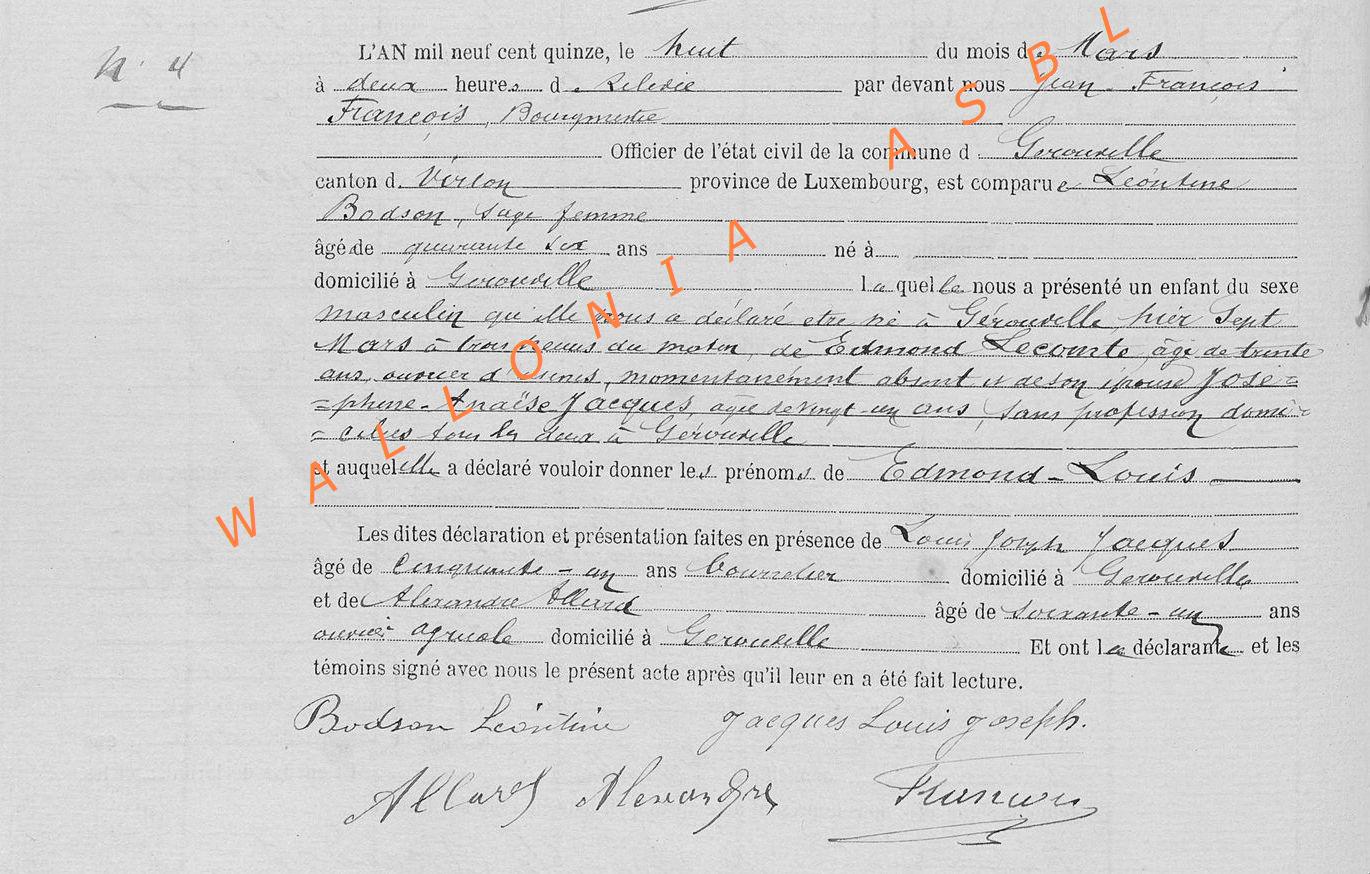 N. 4
L'AN mil neuf cent quinze, le huit du mois de Mars
à deux heures d. Relevée par devant nous Jean François
François, Bourgmestre
Officier de l'état civil de la commune d Gérouville
canton d. Virton province de Luxembourg, est comparue Léontine
Bodson, Sage femme
âgé de quarante six ans né à
domicilié à Gérouville laquelle nous a présenté un enfant du sexe
masculin qu'elle nous a déclaré etre né à Gérouville hier Sept
Mars à trois heures du matin, de Edmond Lecomte, âgé de trente
ans, ouvrier d'Usines, momentanément absent et de son épouse José=
=phine-Anaïse Jacques, agée de vingt-un ans, Sans profession domi=
=ciliés tous les deux à Gérouville
et auquel elle a déclaré vouloir donner les prénoms de Edmond-Louis
Les dites déclaration et présentation faites en présence de Louis Joseph Jacques
âgé de Cinquante-un ans bourrelier domicilié à Gérouville
et de Alexandre Allard âgé de soixante-un ans
ouvrier agricole domicilié à Gérouville Et ont la déclarante et les
témoins signé avec nous le présent acte après qu'il leur en a été fait lecture.
Bodson Léontine Jacques Louis Joseph.
Allard Alexandre François
WALLONIA ASBL